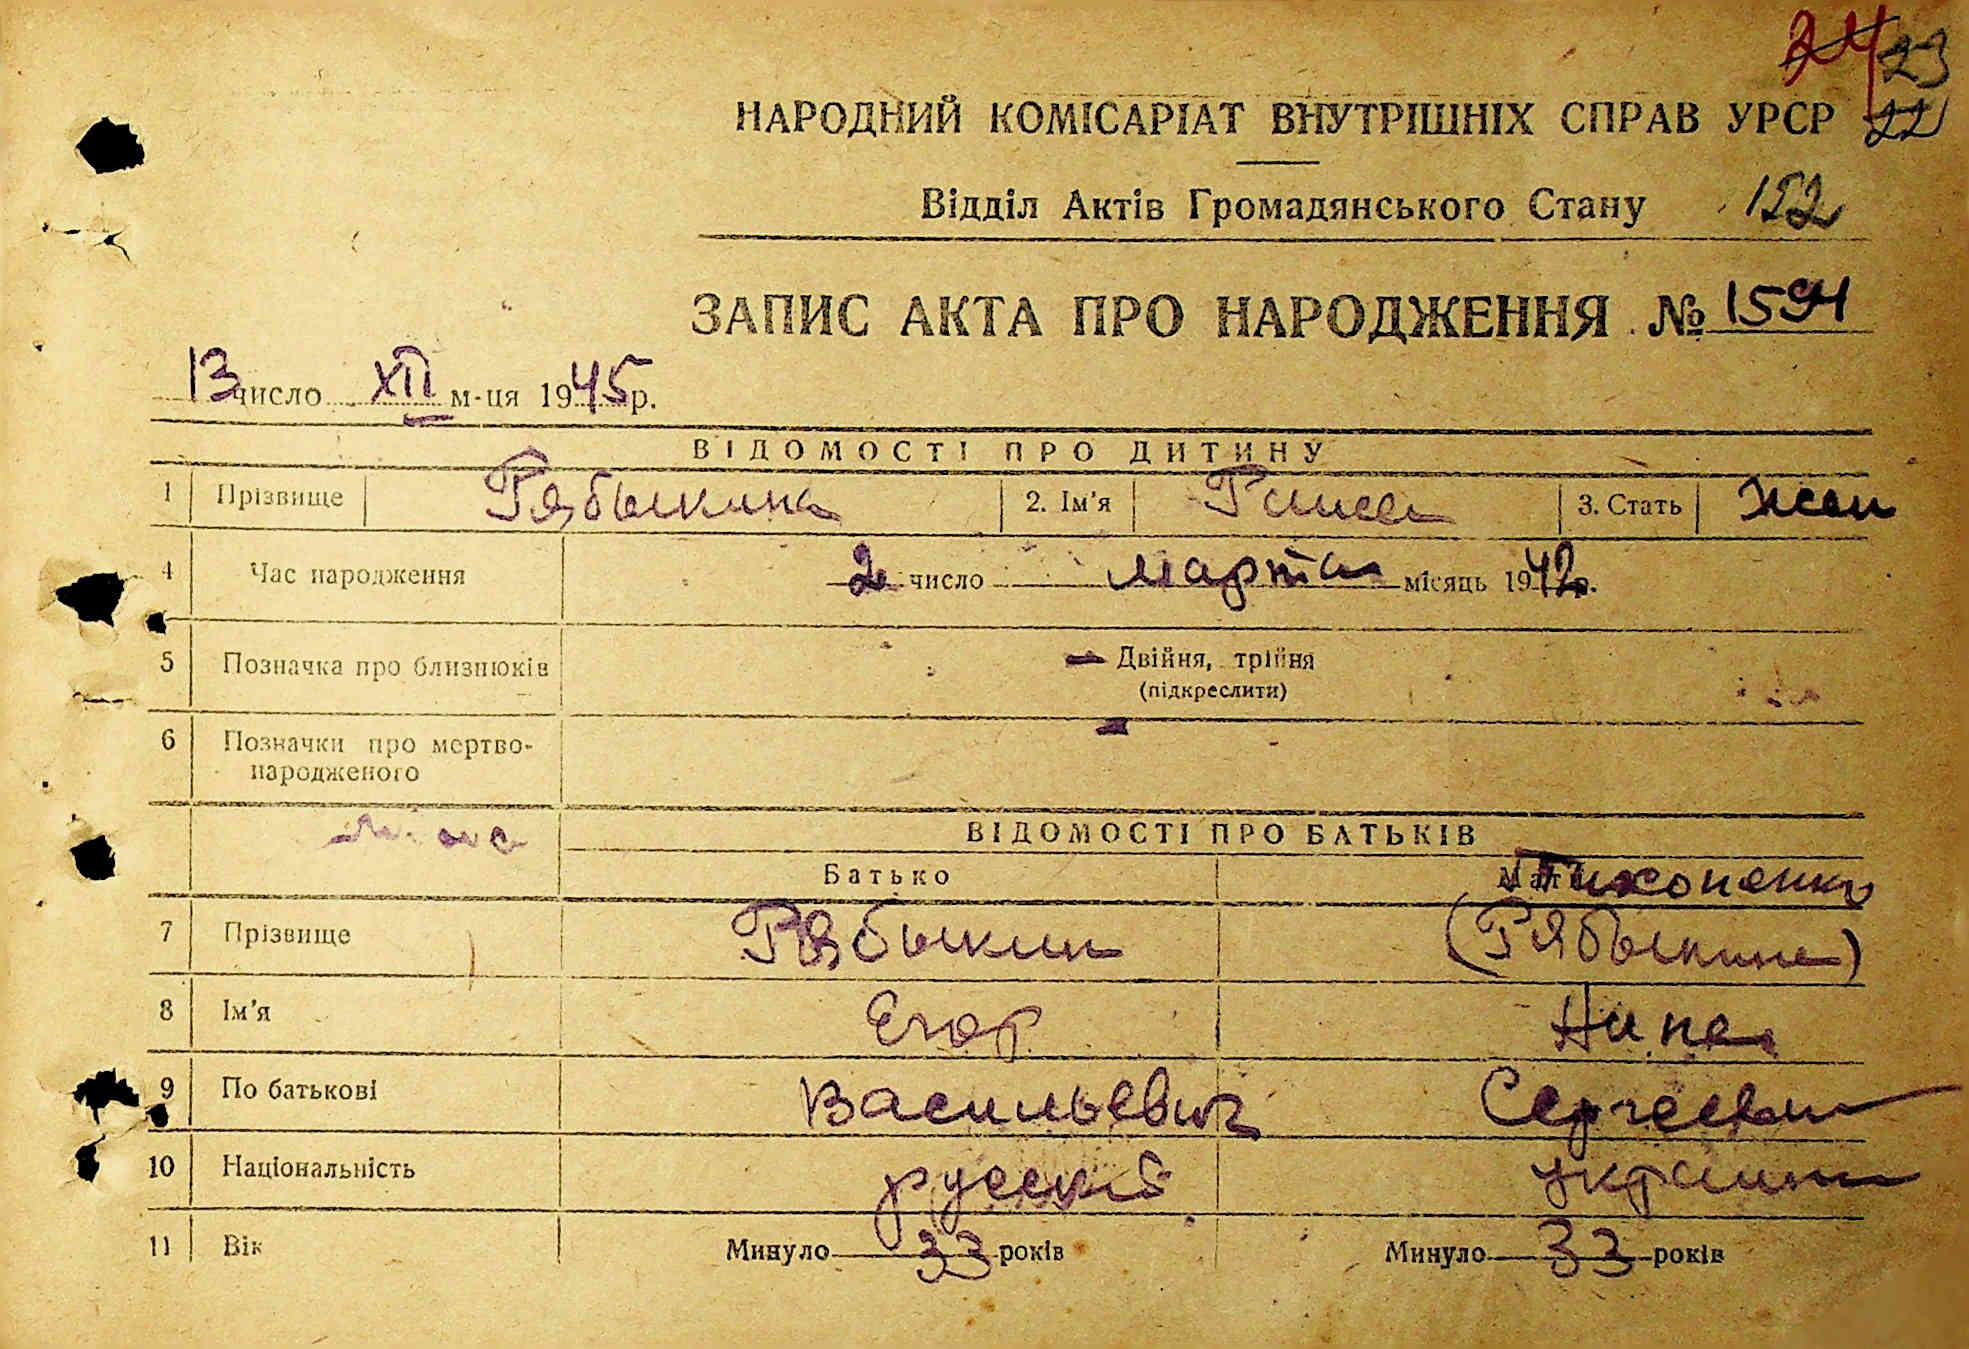 24 23
22
НАРОДНИЙ КОМІСАРІАТ ВНУТРІШНІХ СПРАВ УРСР
Відділ Актів Громадянського Стану 152
ЗАПИС АКТА ПРО НАРОДЖЕННЯ № 1594
13 число XII м-ця 1945 р.
ВІДОМОСТІ ПРО ДИТИНУ
1 Прізвище Рябыкина 2. Ім'я Раиса 3. Стать жен
4 Час народження 2 число марта місяць 1942 р.
5 Позначка про близнюків — Двійня, трійня
(підкреслити)
6 Позначки про мертво-
народженого —
ВІДОМОСТІ ПРО БАТЬКІВ
Батько Мати Тихоненко
7 Прізвище Рябыкин (Рябыкина)
8 Ім'я Егор Нина
9 По батькові Васильевич Сергеевна
10 Національність русский украинка
11 Вік Минуло 33 років Минуло 33 років